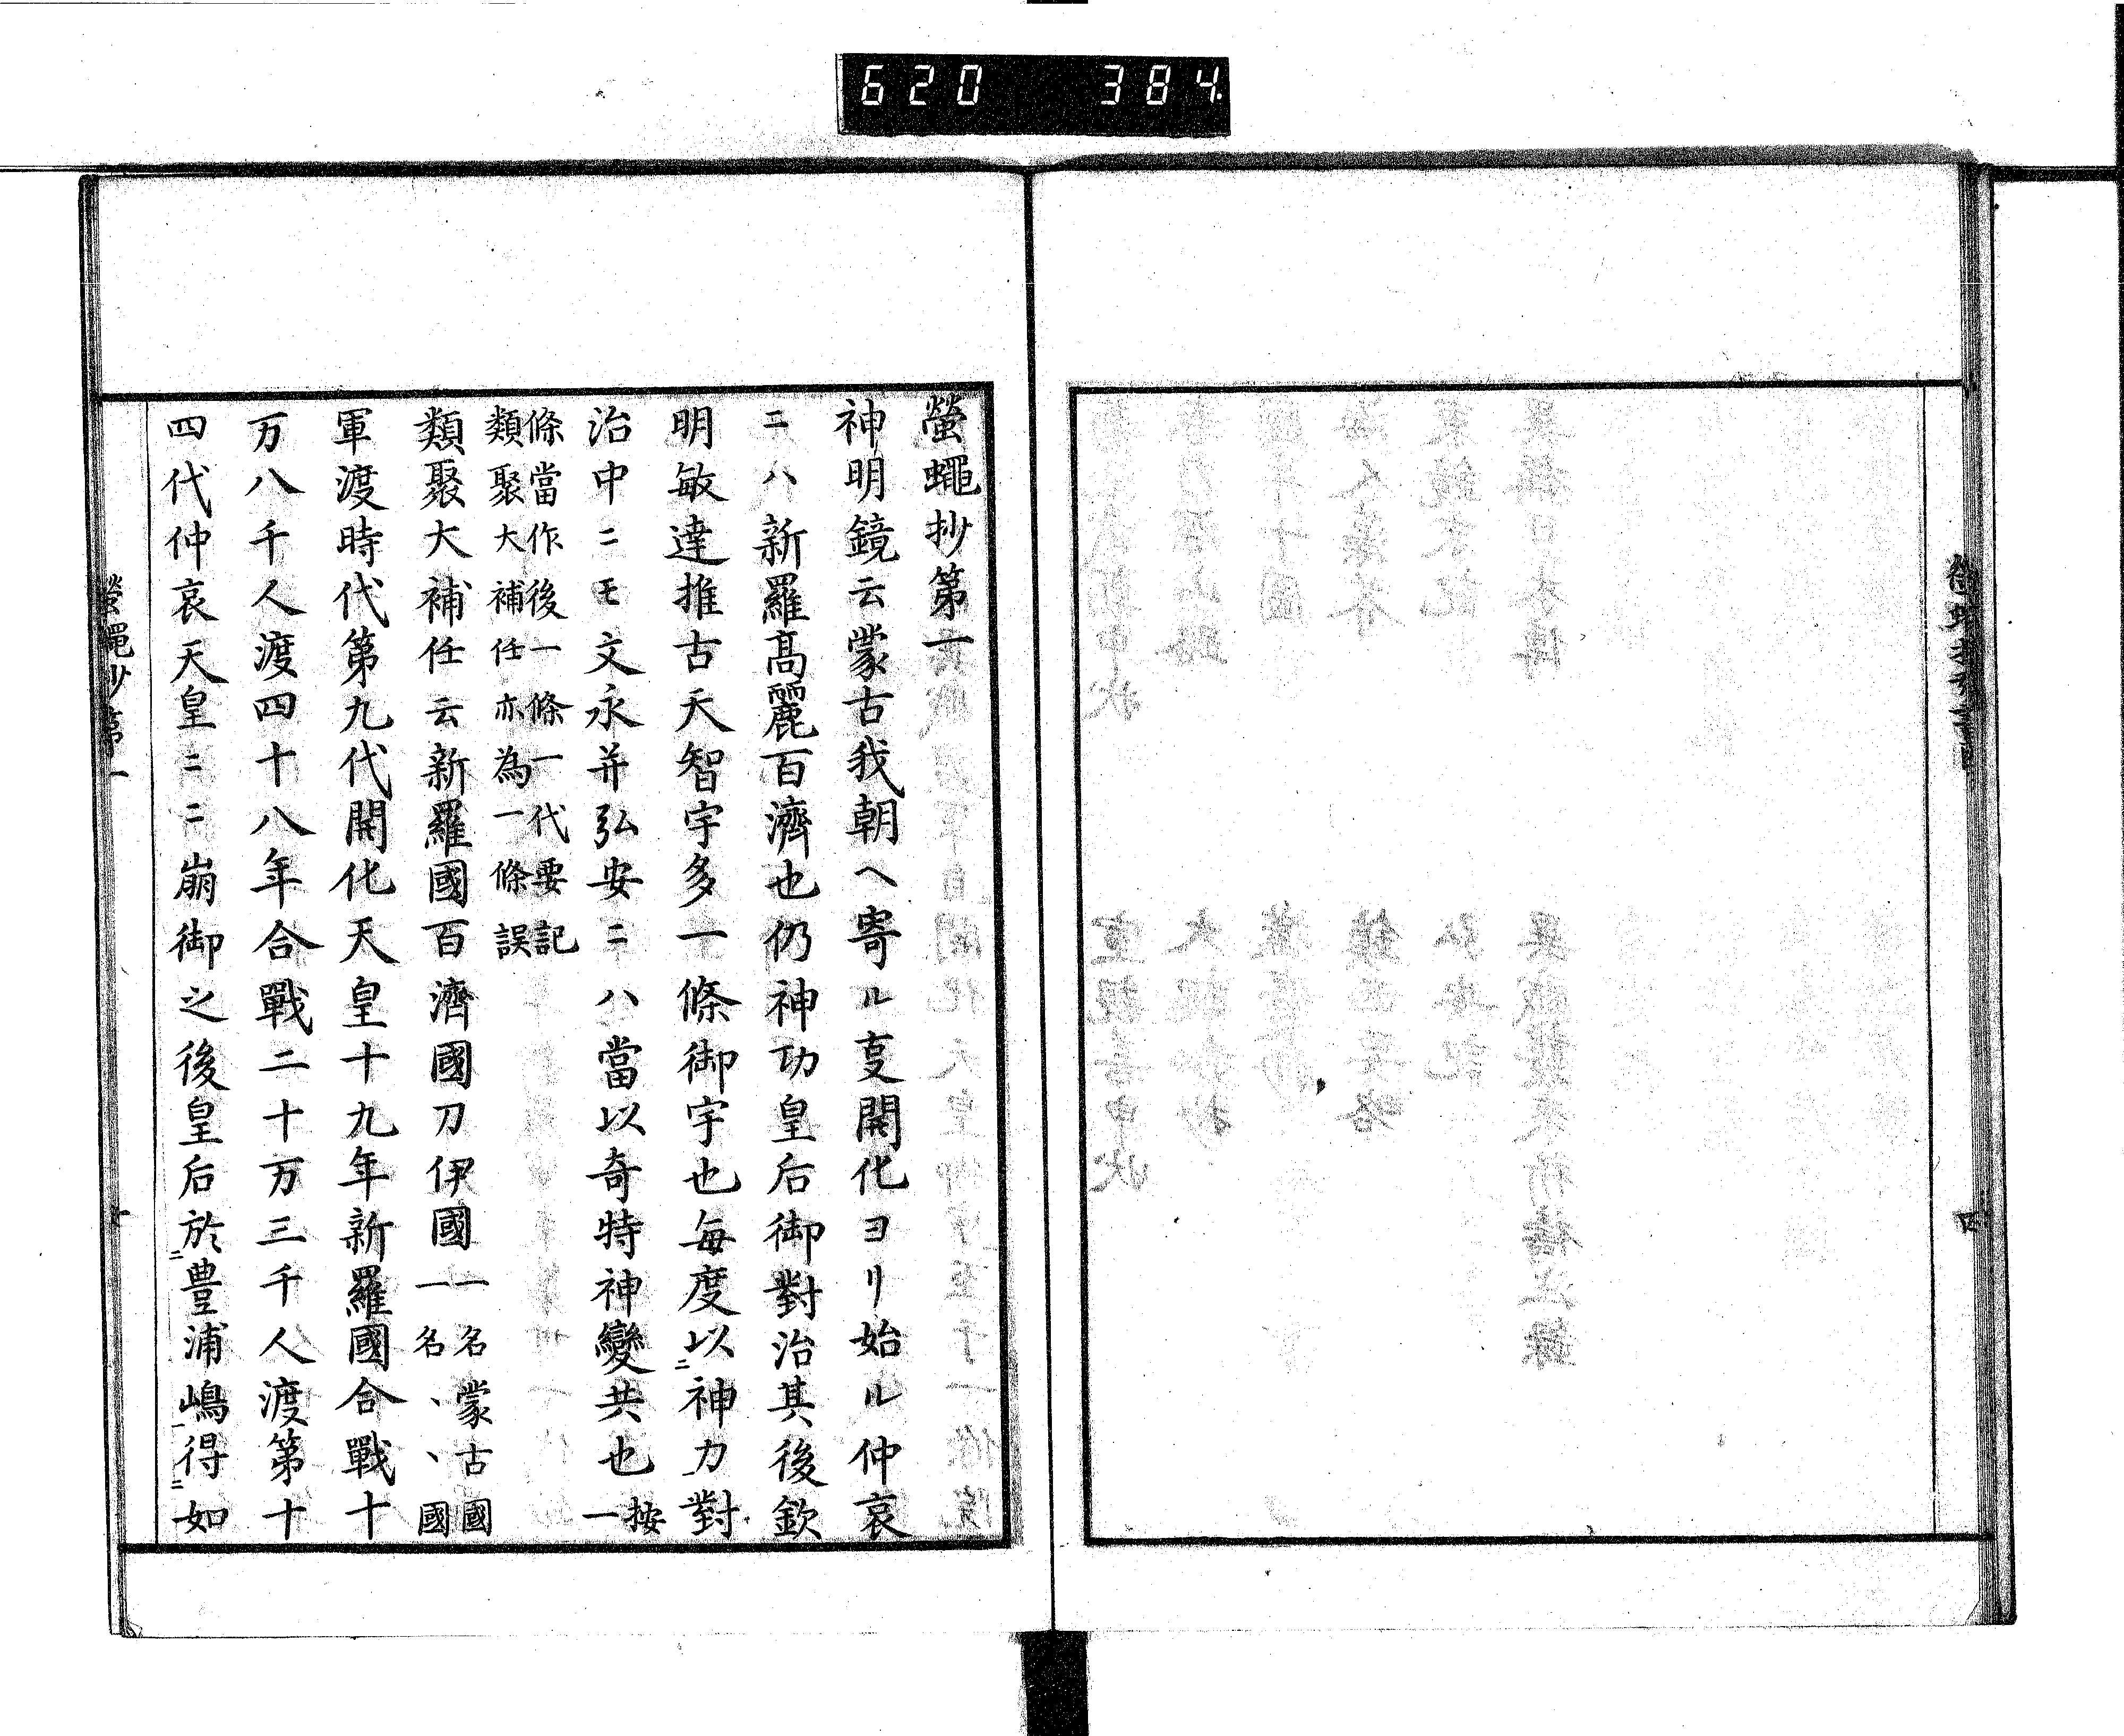 620 384
螢蠅抄第一
神明鏡云蒙古我朝ヘ寄ル叓開化ヨリ始ル仲哀
ニハ新羅高麗百濟也仍神功皇后御對治其後欽
明敏達推古天智宇多一條御宇也每度以二神力一對
治中ニモ文永并弘安ニハ當以奇特神變共也按一
條當作後一條一代要記
類聚大補任亦為一條誤
類聚大補任云新羅國百濟國刀伊國一名蒙古國一名、、國
軍渡時代第九代開化天皇十九年新羅國合戰十
万八千人渡四十八年合戰二十万三千人渡第十
四代仲哀天皇ニニ崩御之後皇后於二豊浦嶋一得二如
螢蠅抄第一